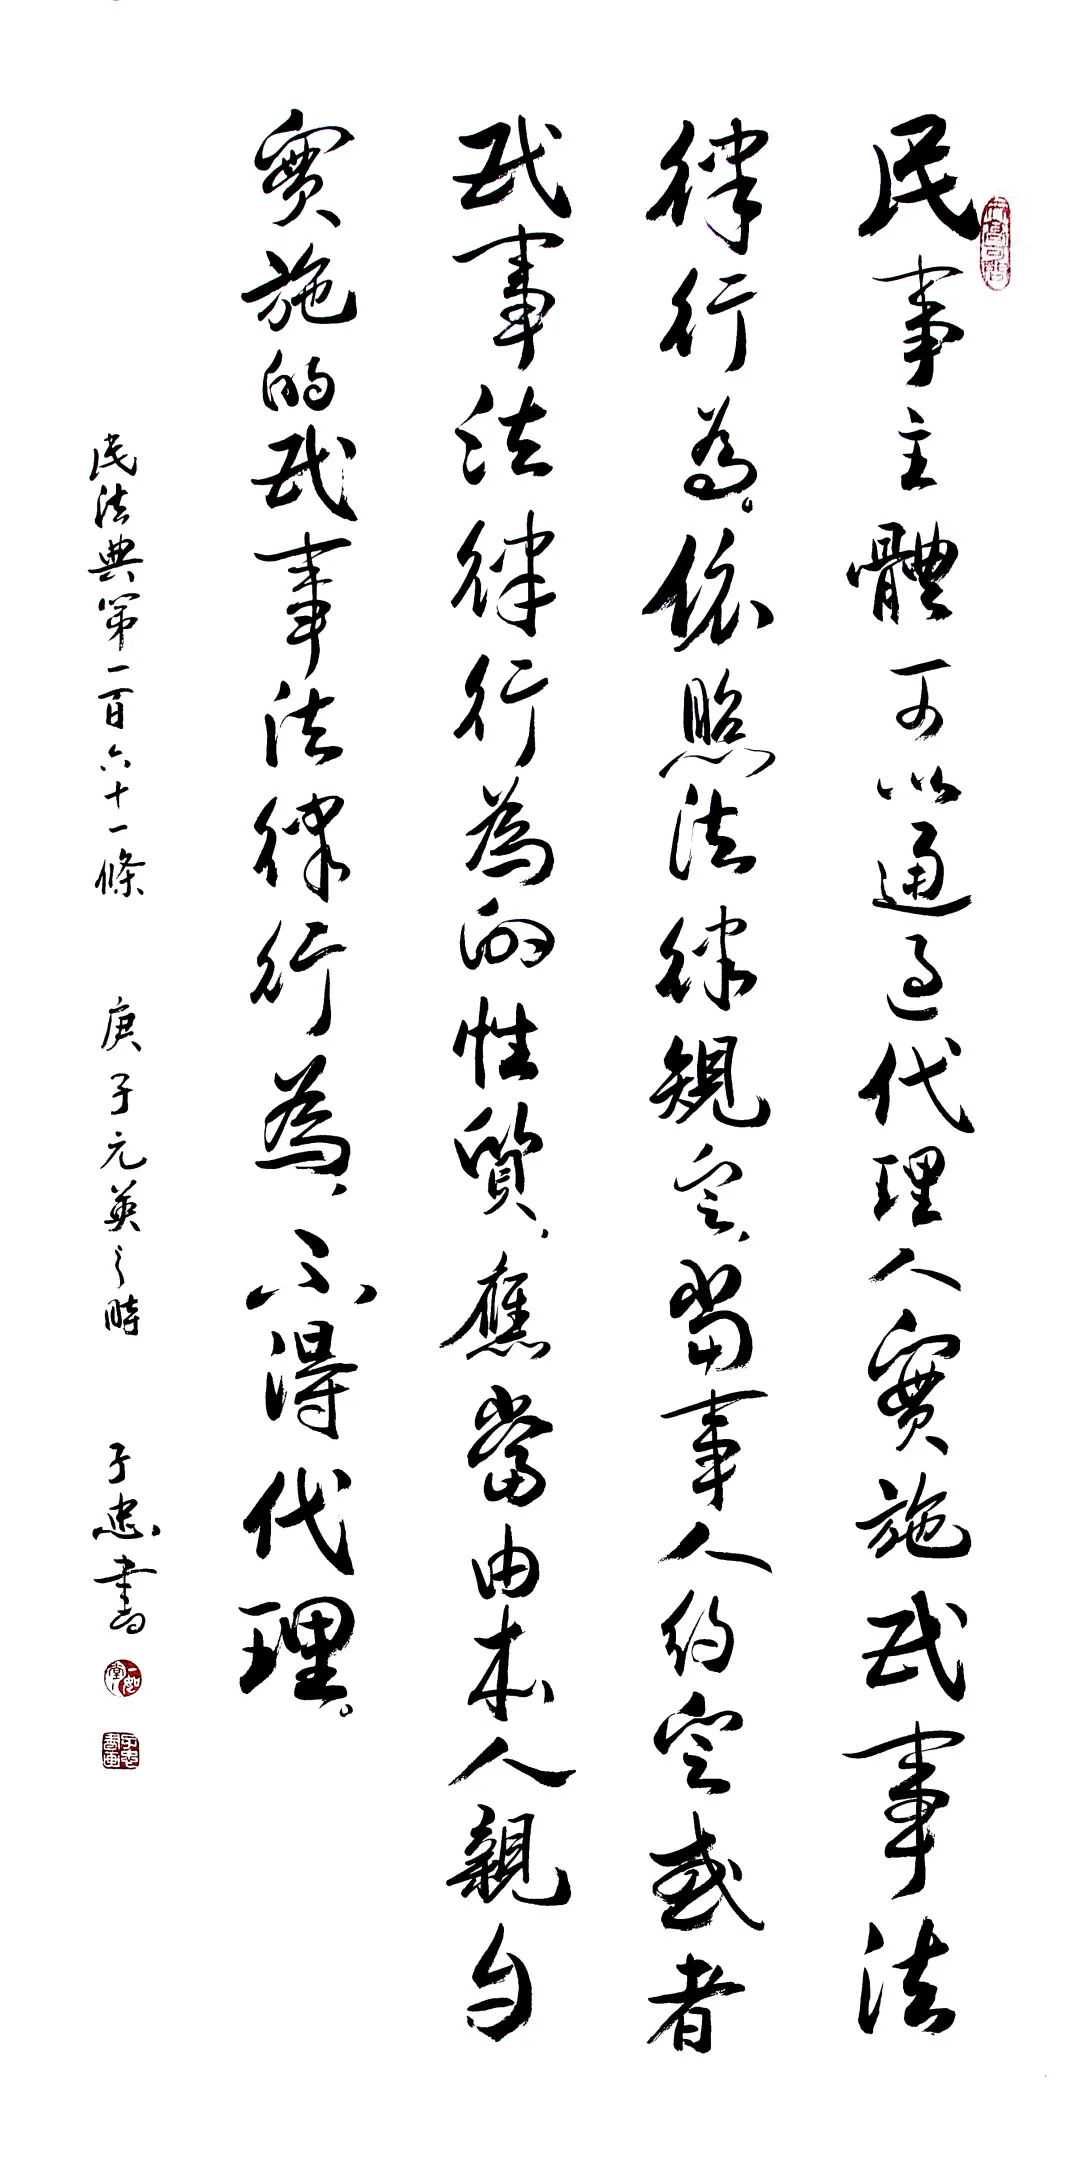 民事主體可以通過代理人實施民事法
律行為。依照法律規定、當事人約定或者
民事法律行為的性質，應當由本人親自
實施的民事法律行為，不得代理。
民法典第一百六十一條 庚子元英之時 子忠書